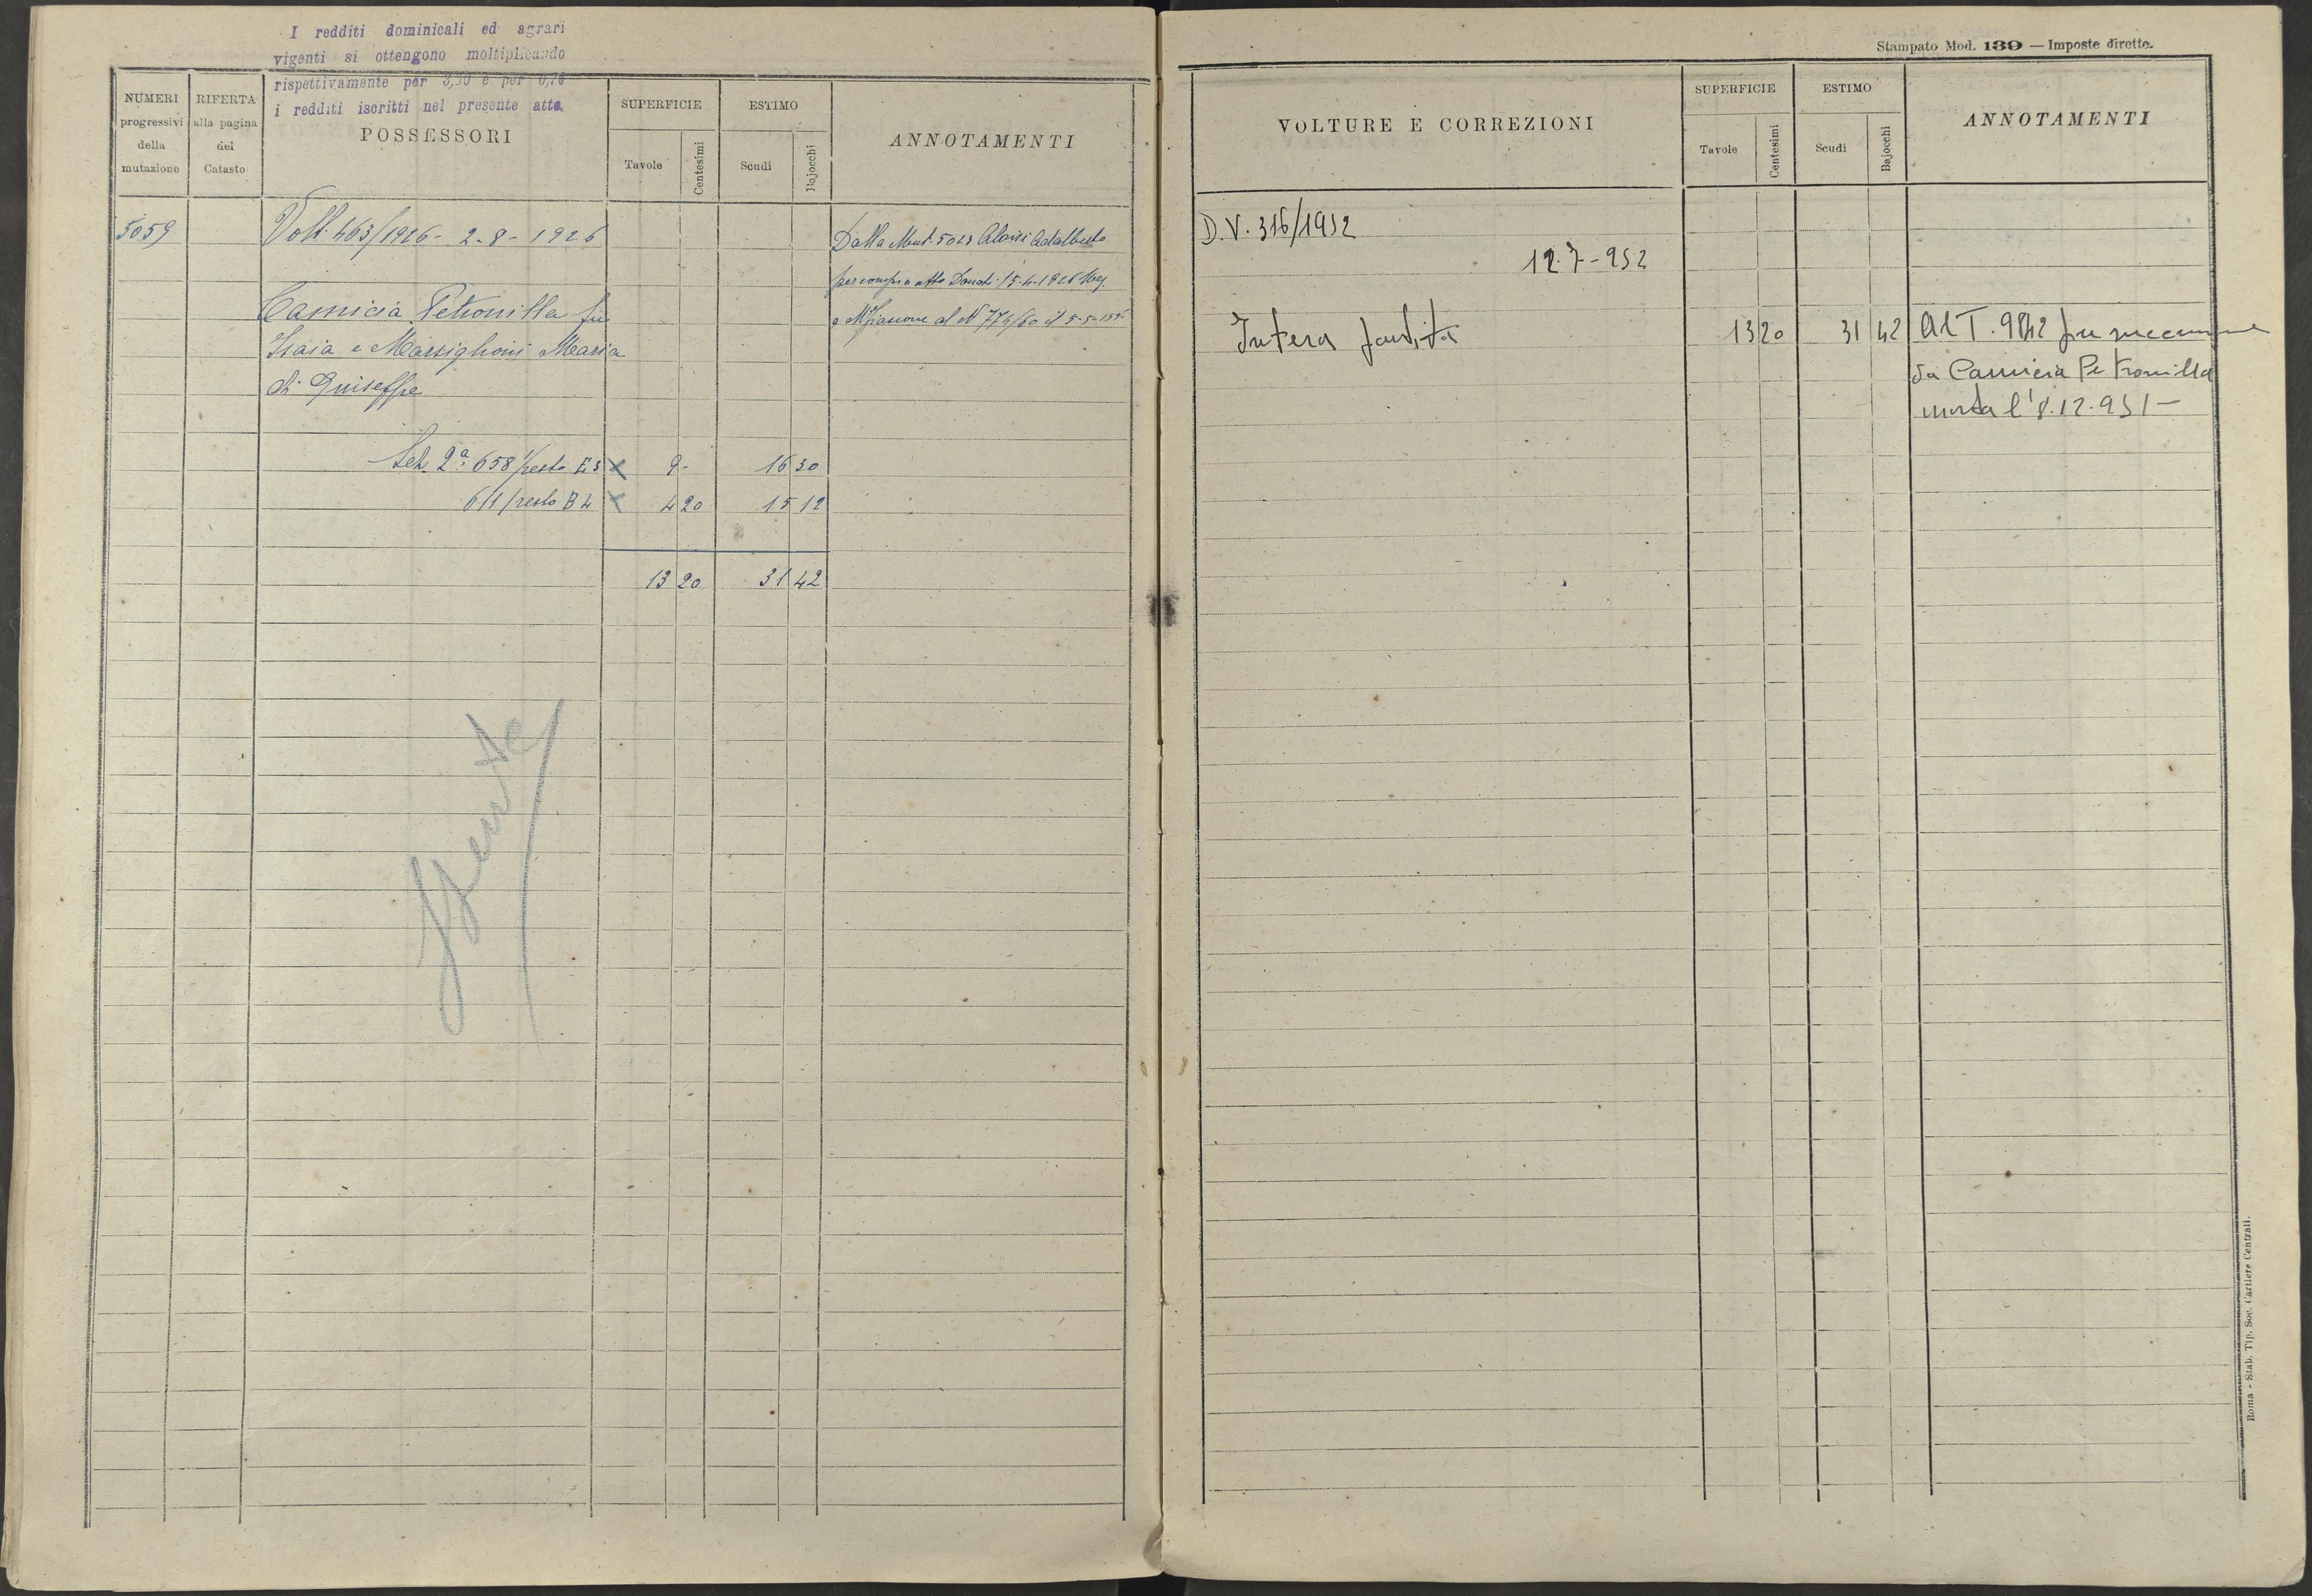 I redditi dominicali ed agrari
vigenti si ottengono moltiplicando
rispettivamente per 3,50 e per 0,76
i redditi iscritti nel presente atto.
NUMERI
progressivi
della
mutazione
RIFERTA
alla pagina
del
Catasto
POSSESSORI
SUPERFICIE
Tavole
Centesimi
ESTIMO
Scudi
Bajocchi
ANNOTAMENTI
5059
Volt. 463/1926 - 2-8-1926
Dalla Mut. 5023 Aloisi Adalberto
per compra atto Donati 15-4-1926 Reg.
al N 774/60 il 5-5-
Camicia Petronilla fu
Isaia e Marsiglioni Maria
di Guiseffe
Sez. 2ª 658/resto E3 x 9 - 16 30
611/resto B4 x 4 20 15 12
13 20 31 42
Spento
Stampato Mod. 139 — Imposte dirette.
VOLTURE E CORREZIONI
SUPERFICIE
Tavole
Centesimi
ESTIMO
Scudi
Bajocchi
ANNOTAMENTI
D.V. 316/1952
12-7-952
Intera partita 13 20 31 42 Al T. 9842 per successione
da Camicia Petronilla
morta l'8.12.951-
Roma - Stab. Tip. Soc. Cartiere Centrali.